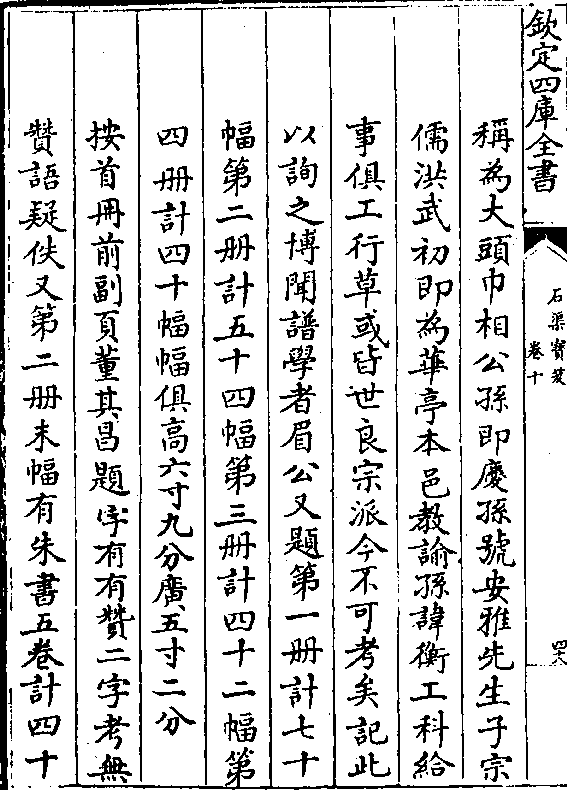 欽定四庫全書
石渠寶笈
卷十
四六
稱為大頭巾相公孫即慶孫號安雅先生子宗
儒洪武初即為華亭本邑教諭孫諱衡工科給
事俱工行草或皆世良宗派今不可考矣記此
以詢之博聞譜學者眉公又題第一册計七十
幅第二册計五十四幅第三册計四十二幅第
四册計四十幅幅俱高六寸九分廣五寸二分
按首冊前副頁董其昌題字有有贊二字考無
贊語疑佚又第二册末幅有朱書五卷計四十